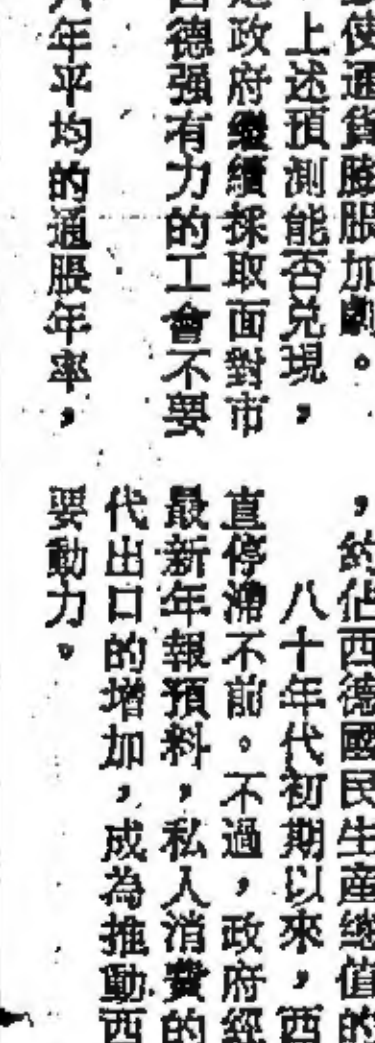 使通貨膨脹加劇。
上述預測能否兌現，
政府繼續採取面對市
德强有力的工會不要
年平均的通脹年率，
，約佔西德國民生產總值的
八十年代初期以來，西
直停滯不前。不過，政府經
最新年報預料，私人消費的
代出口的增加，成為推動西
要動力。